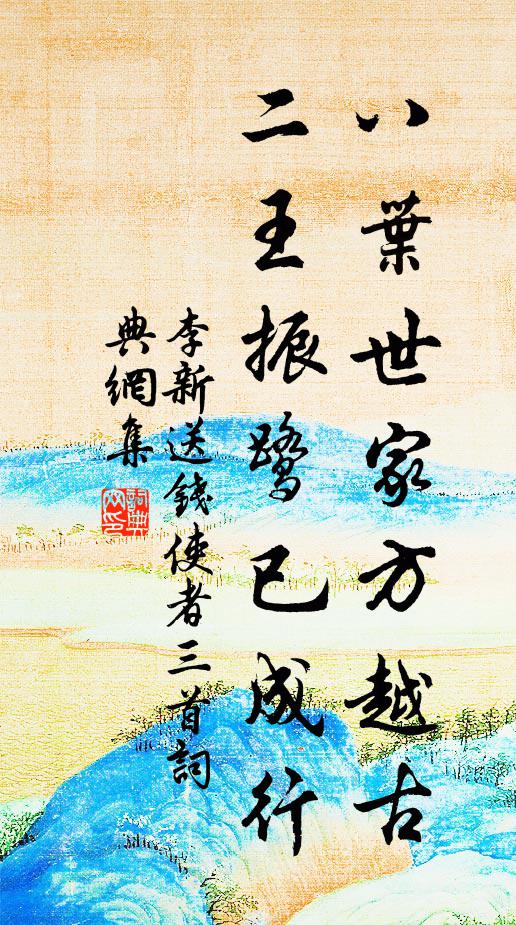 八葉世家方越古
二王振鷺已成行
李新送錢使者三首詞
典網集
詞典網印